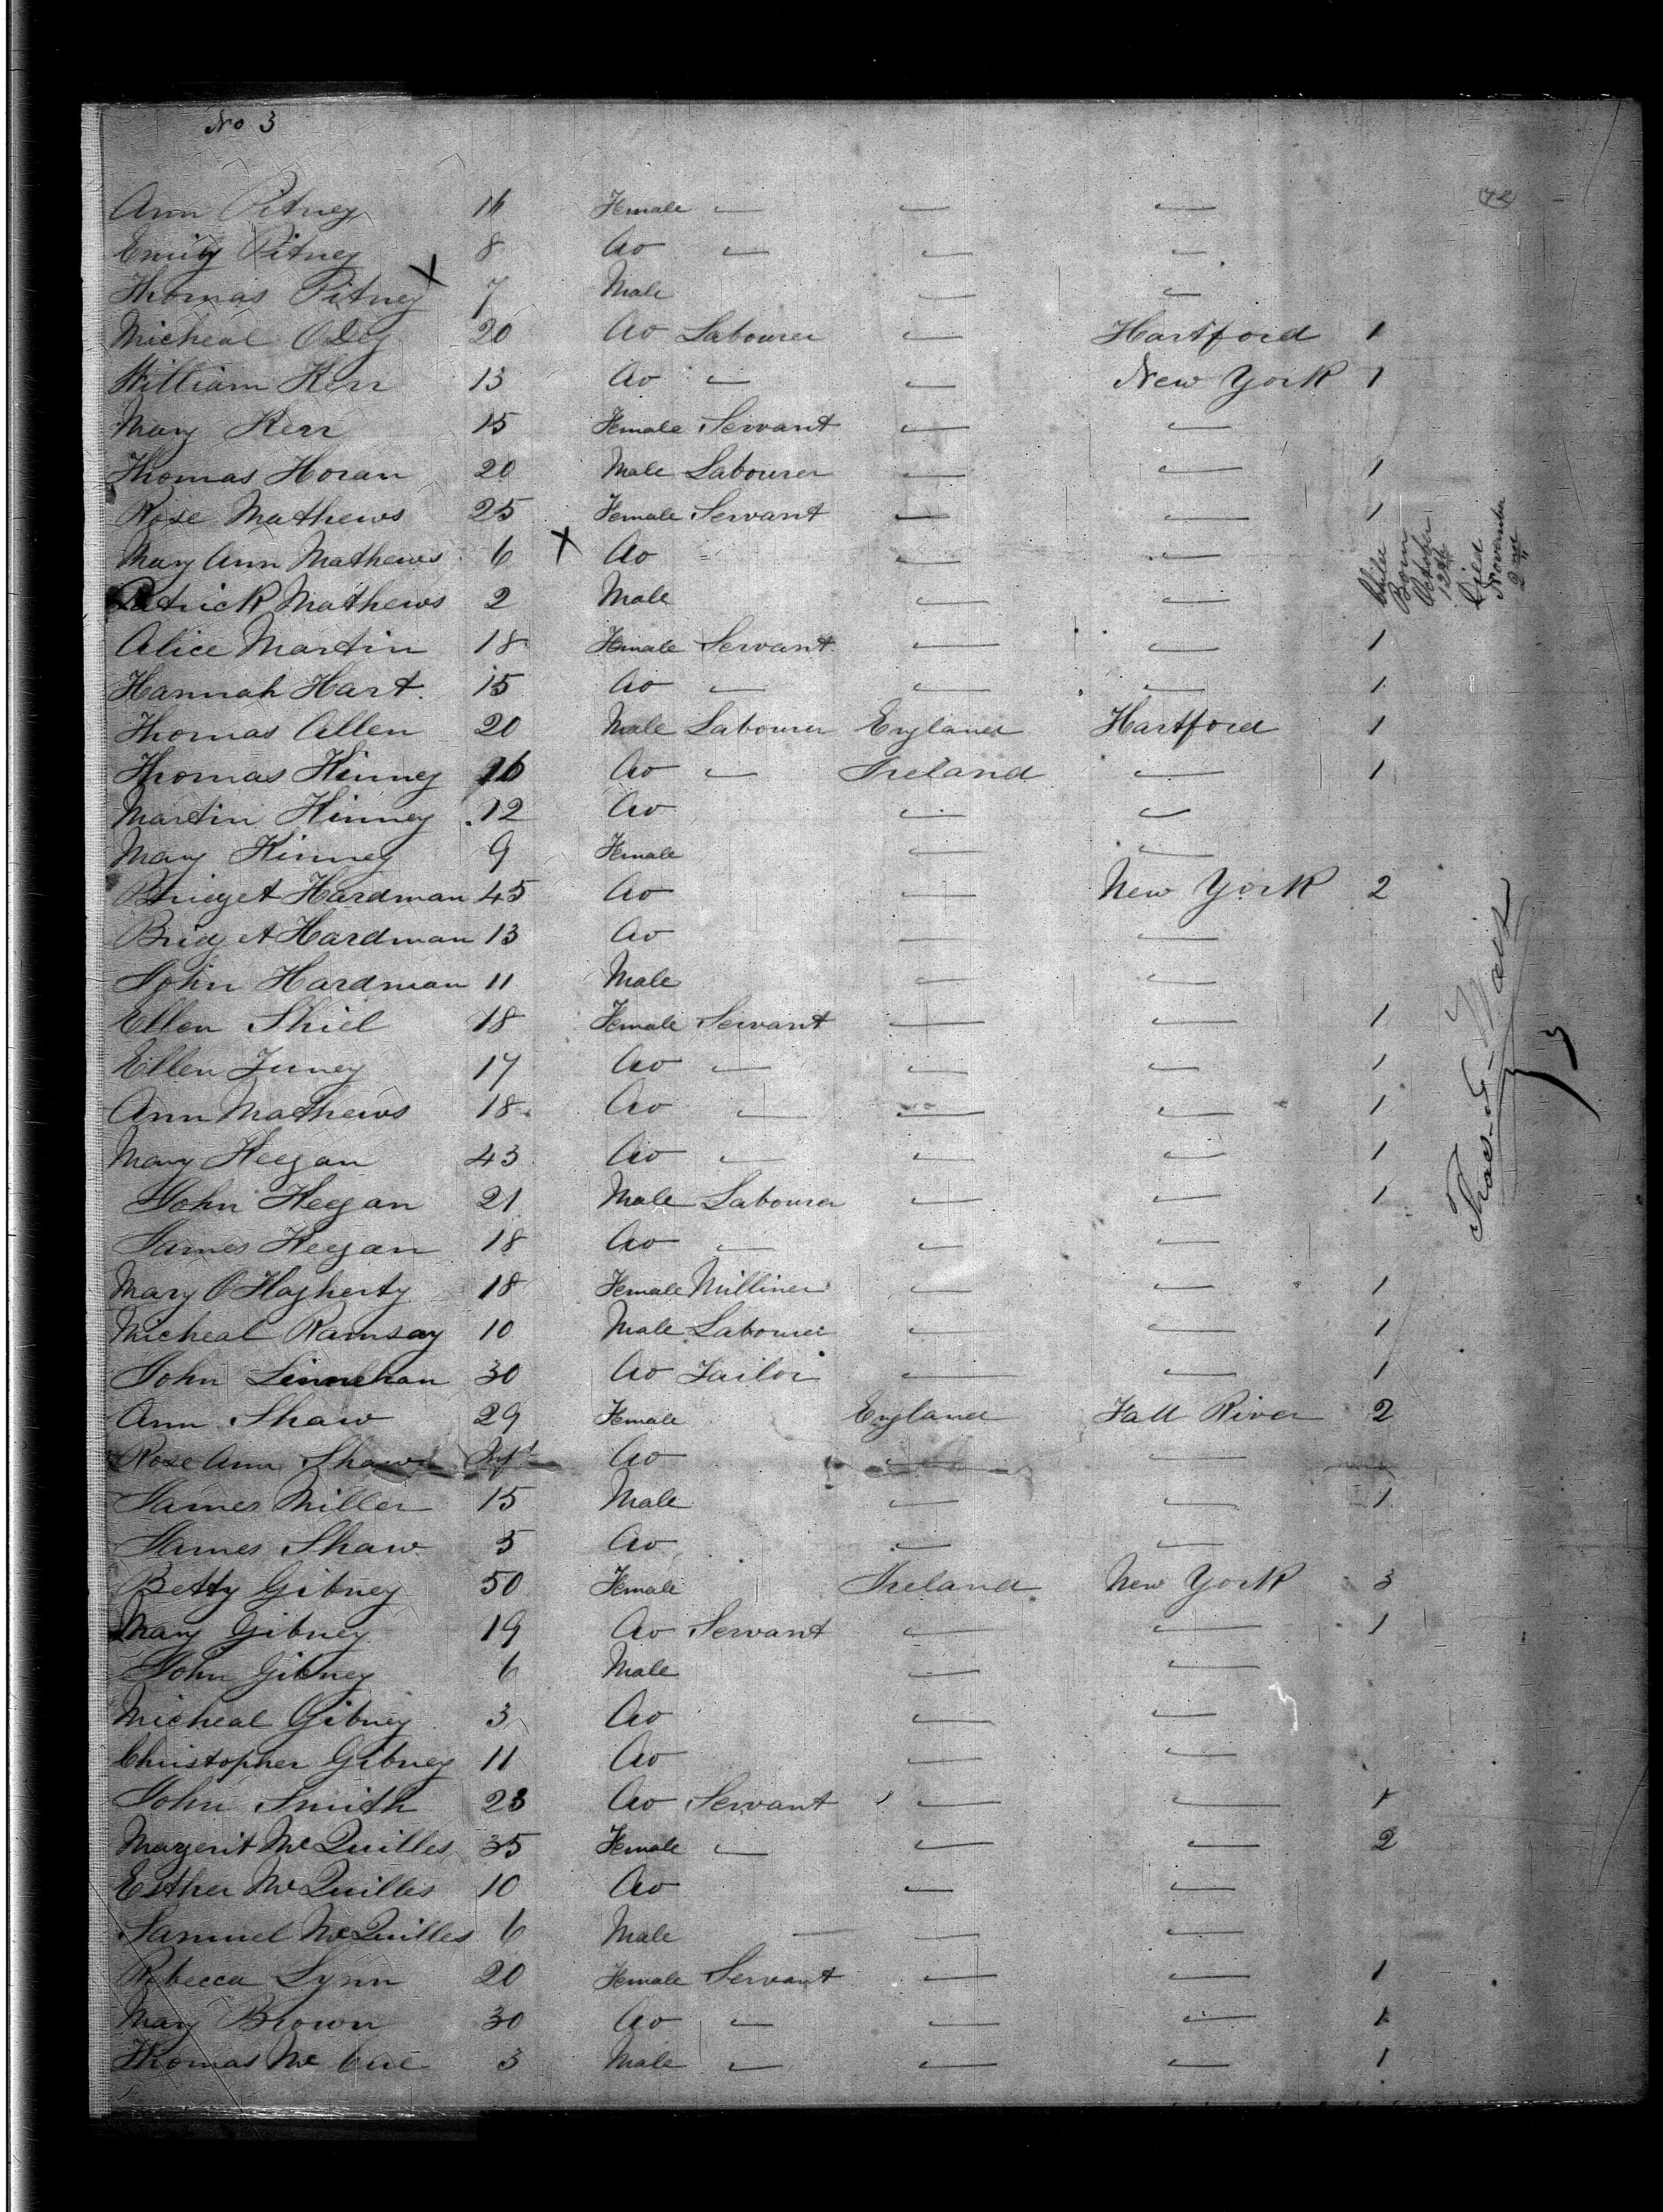 No 3
42
Ann Pitney 16 Female — — —
Emily Pitney 8 Do — — —
Thomas Pitney X 7 Male — —
Micheal ODey 20 Do Labourer — Hartford 1
William Kerr 13 Do — — New York 1
Mary Kerr 15 Female Servant — —
Thomas Horan 20 Male Labourer — — 1
Rose Mathews 25 Female Servant — — 1
Mary Ann Mathews 6 X Do — —
Patrick Mathews 2 Male — —
Child Born October 12th Died November 2nd
Alice Martin 18 Female Servant — — 1
Hannah Hart 15 Do — — — 1
Thomas Allen 20 Male Labourer England Hartford 1
Thomas Kinney 16 Do — Ireland — 1
Martin Kinney 12 Do — —
Mary Kinney 9 Female — —
Bridget Hardman 45 Do — New York 2
Bridget Hardman 13 Do — —
John Hardman 11 Male — —
Ellen Shiel 18 Female Servant — — 1
Ellen Juney 17 Do — — — 1
Ann Mathews 18 Do — — — 1
Mary Keegan 43 Do — — — 1
John Keegan 21 Male Labourer — — 1
James Keegan 18 Do — — —
Mary O'Flagherty 18 Female Milliner — — 1
Micheal Ramsay 10 Male Labourer — — 1
John Linnehan 30 Do Tailor — — 1
Ann Shaw 29 Female England Fall River 2
Rose Ann Shaw Inft Do — —
James Miller 15 Male — — 1
James Shaw 5 Do — —
Betty Gibney 50 Female Ireland New York 3
Mary Gibney 19 Do Servant — — 1
John Gibney 6 Male — —
Micheal Gibney 3 Do — —
Christopher Gibney 11 Do — —
John Smith 23 Do Servant — — 1
Margerit McQuilles 35 Female — — — 2
Esther McQuilles 10 Do — —
Samuel McQuilles 6 Male — — —
Rebecca Lynn 20 Female Servant — — 1
Mary Brown 30 Do — — — 1
Thomas McCue 3 Male — — — 1